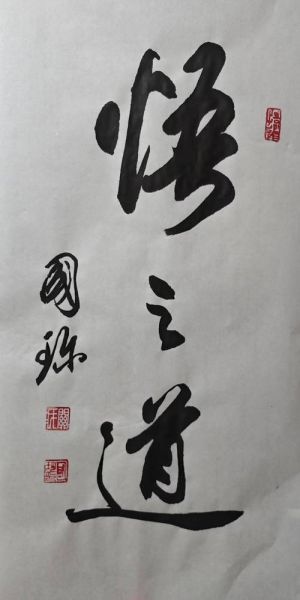 悟之道
國珍